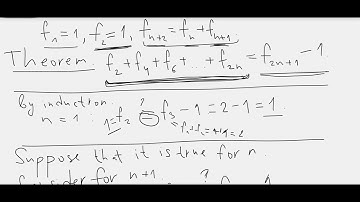 f₁=1, f₂=1, fₙ₊₂=fₙ+fₙ₊₁
Theorem. f₂+f₄+f₆+...+f₂ₙ=f₂ₙ₊₁-1.
By induction
n=1: 1=f₂ ?= f₃-1=2-1=1.
Suppose that it is true for n.
for n+1